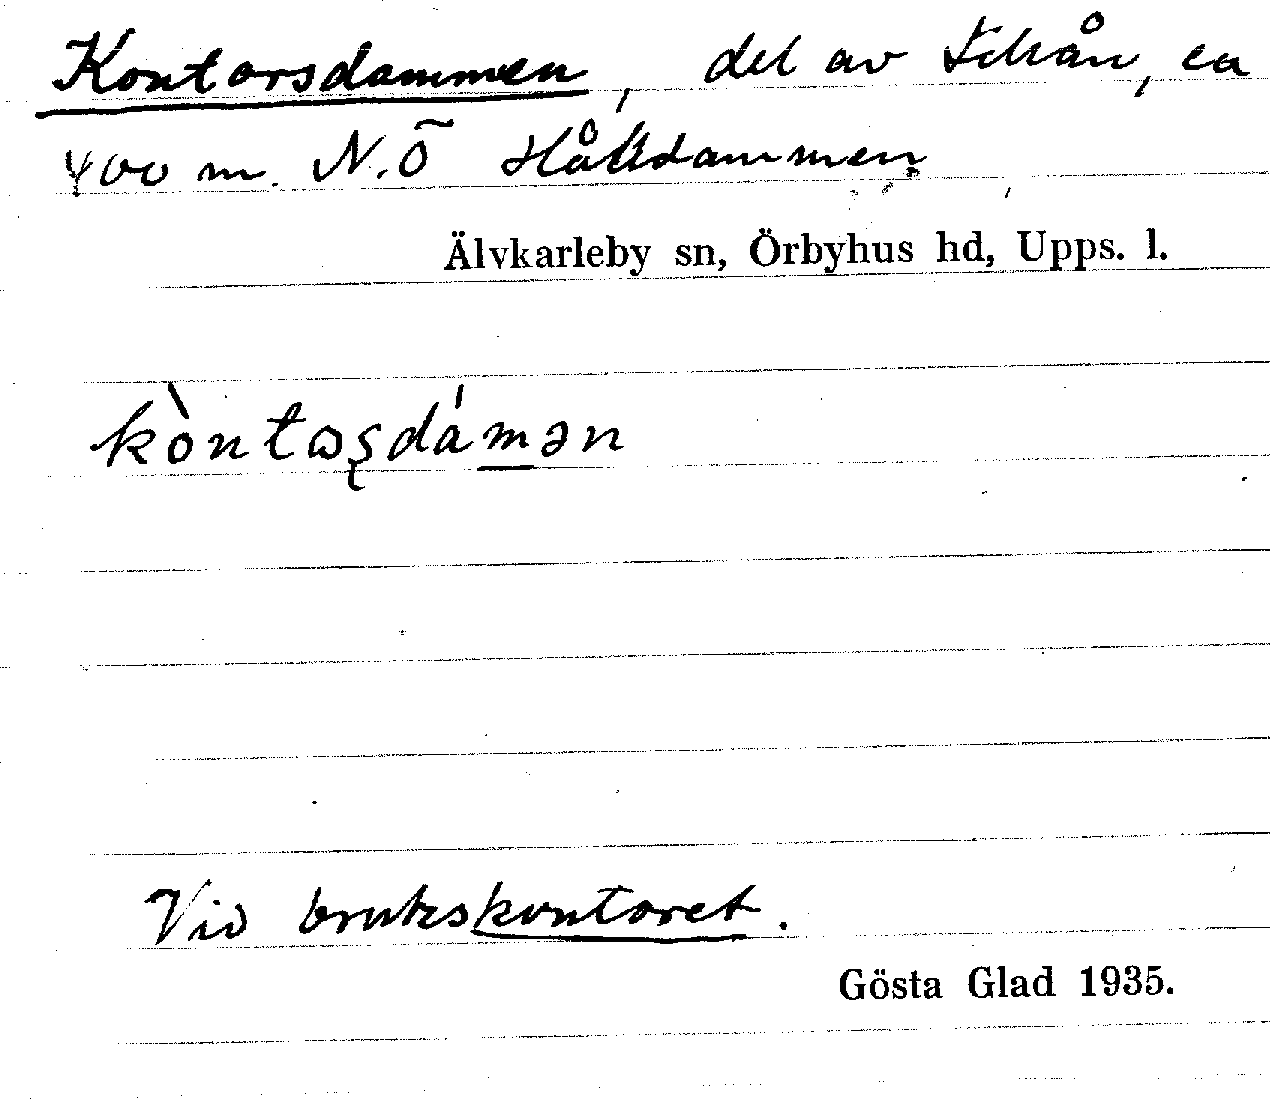 Kontorsdammen, del av, ca
400 m. N.Ö Hålldammen
Älvkarleby sn, Örbyhus hd, Upps. l.
kòntɷʂdámən
Vid brukskontoret.
Gösta Glad 1935.